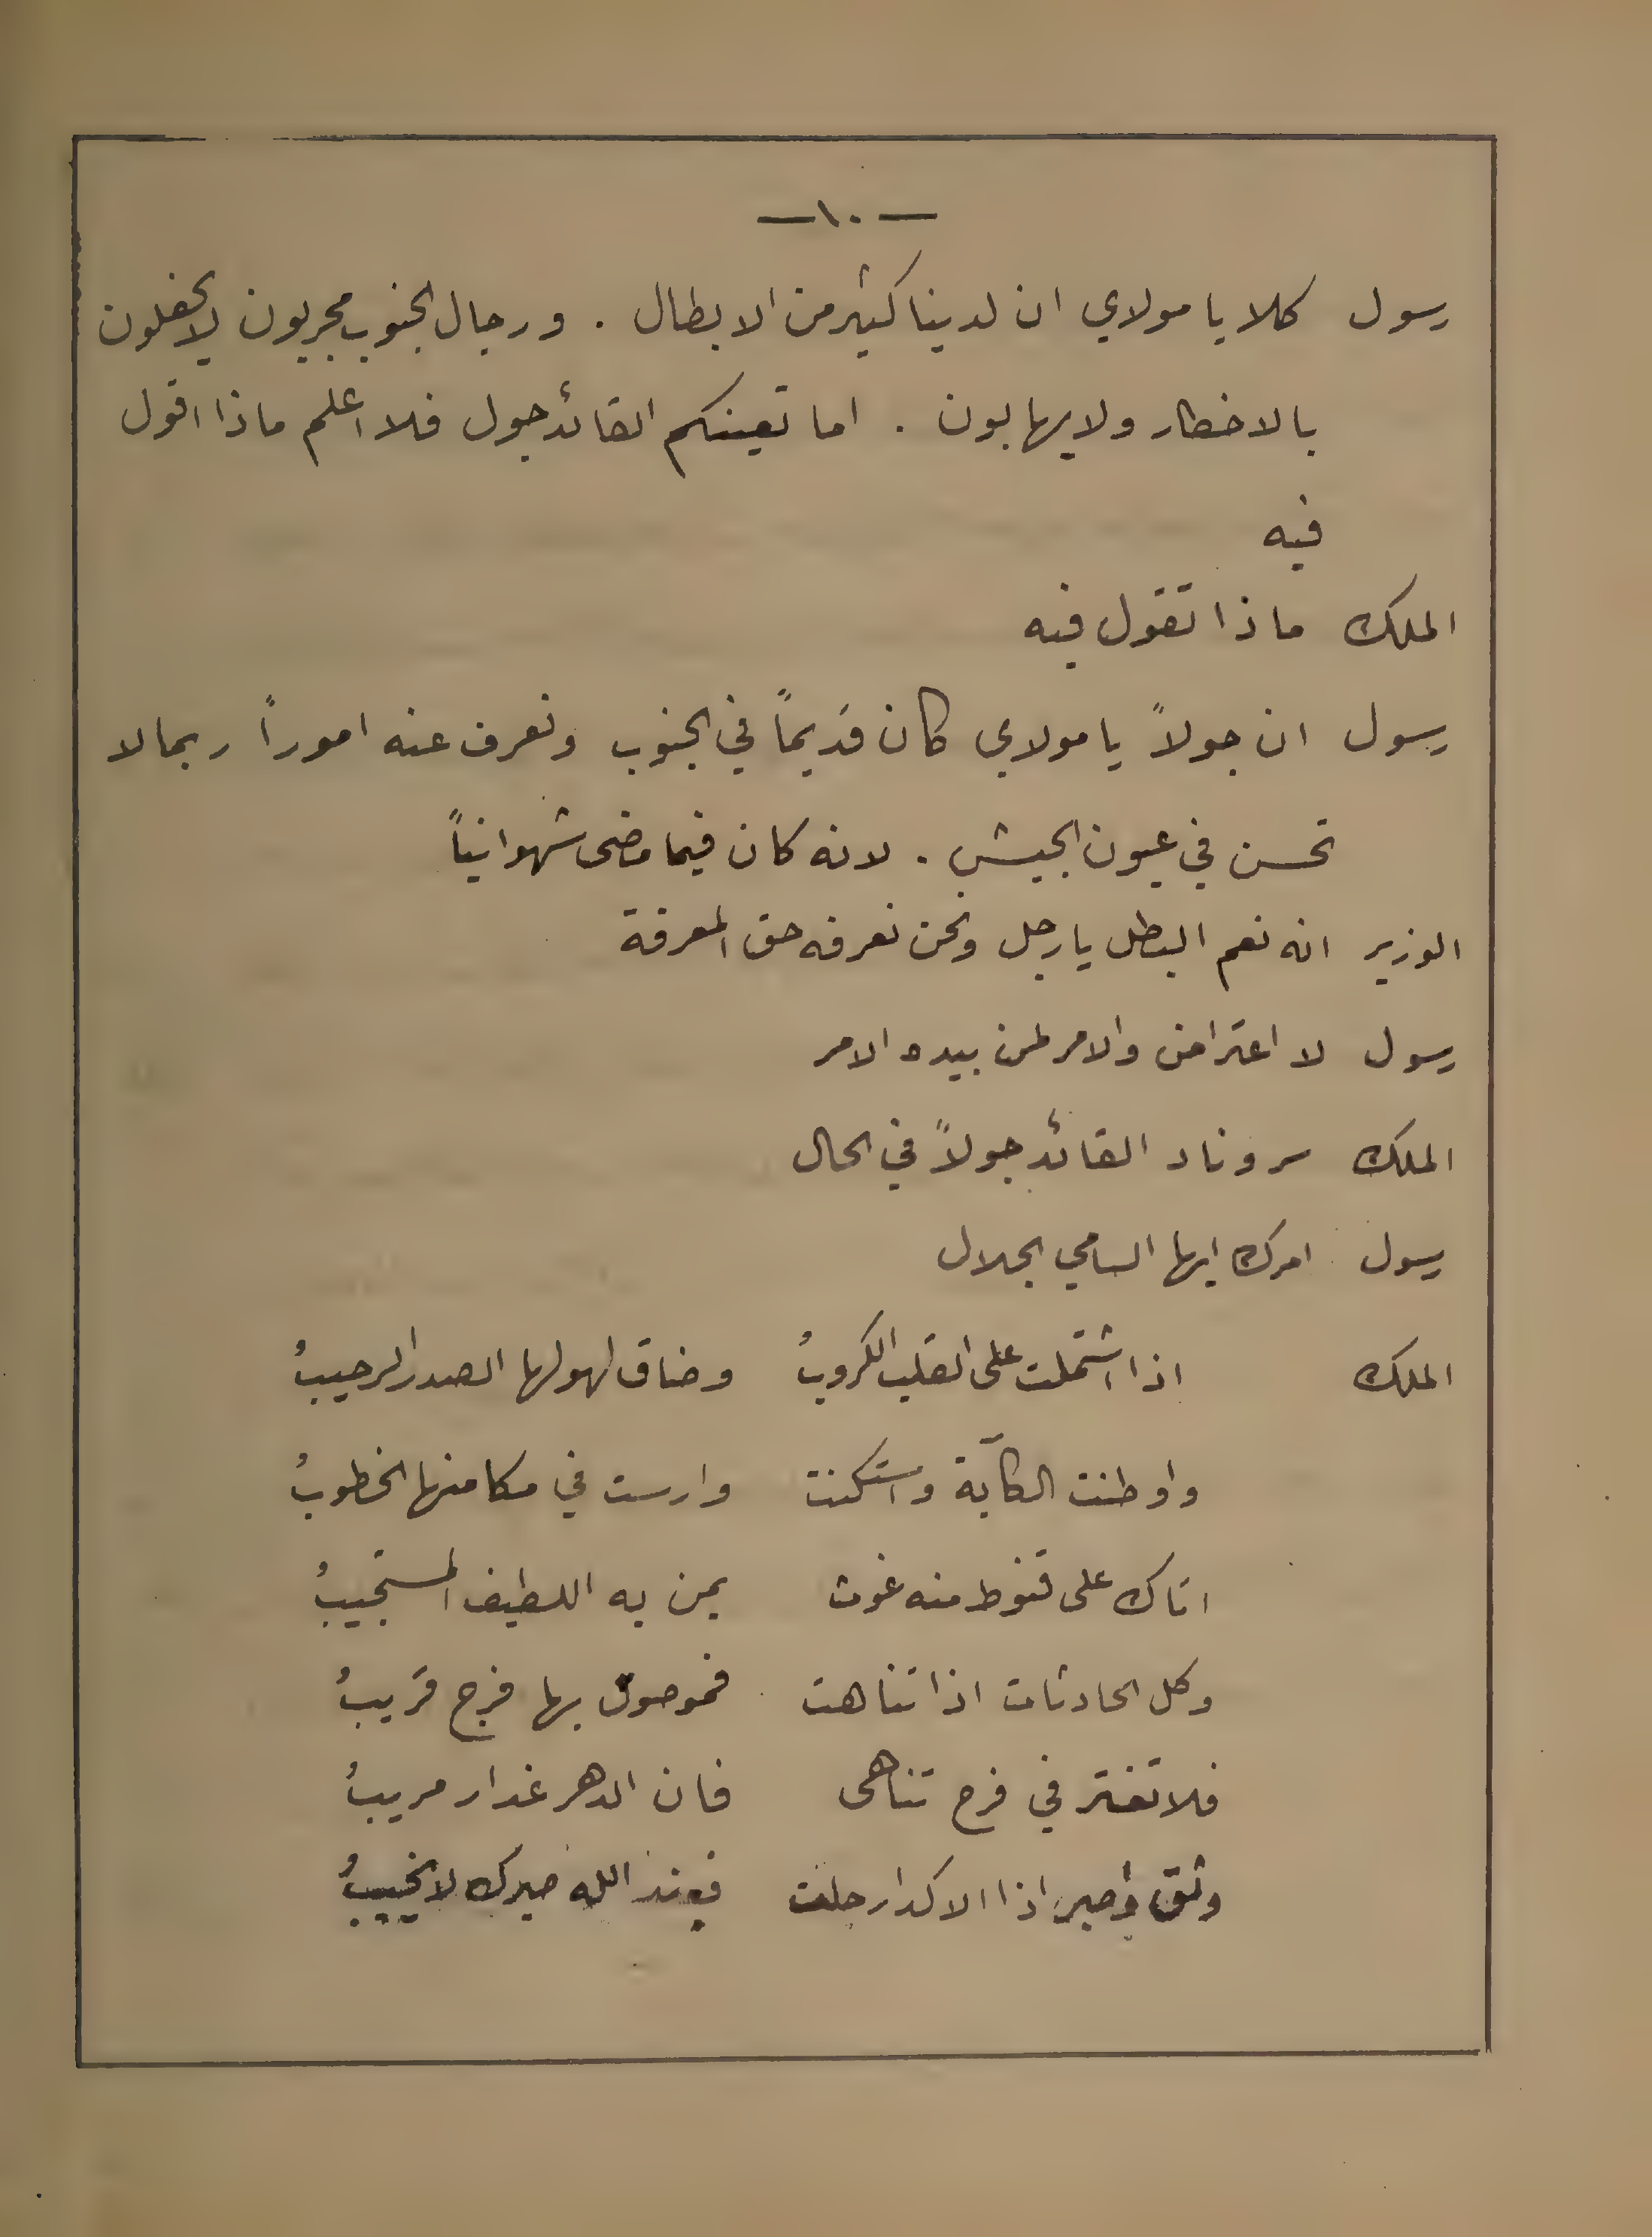 — ١٠ —
رسول كلا يا مولاي ان لدينا كثير من الابطال . ورجال الجنوب مجربون لا يحفلون
بالاخطار ولا يهابون . اما تعينكم القائد جول فلا اعلم ماذا اقول
فيه
الملك ماذا تقول فيه
رسول ان جولاً يا مولاي كان قديماً في الجنوب ونعرف عنه اموراً ربما لا
تحسن في عيون الجيش . لانه كان فيما مضى شهوانياً
الوزير انه نعم البطل يا رجل ونحن نعرفه حق المعرفة
رسول لا اعتراض والامر لمن بيده الامر
الملك سر وناد القائد جولاً في الحال
رسول امرك ايها السامي الجلال
الملك اذا اشتملت على القلب الكروبُ وضاق لهولها الصدر الرحيبُ
واوطنت الكآبة واستكنت وارست في مكامنها الخطوبُ
اتاك على قنوط منه غوث يمن به اللطيف المستجيبُ
وكل الحادثات اذا تناهت فموصول بها فرج قريبُ
فلا تغتر في فرح تناهى فان الدهر غدار مريبُ
وثق واصبر اذا الاكدار حلت فعند الله صبرك لا يخيبُ